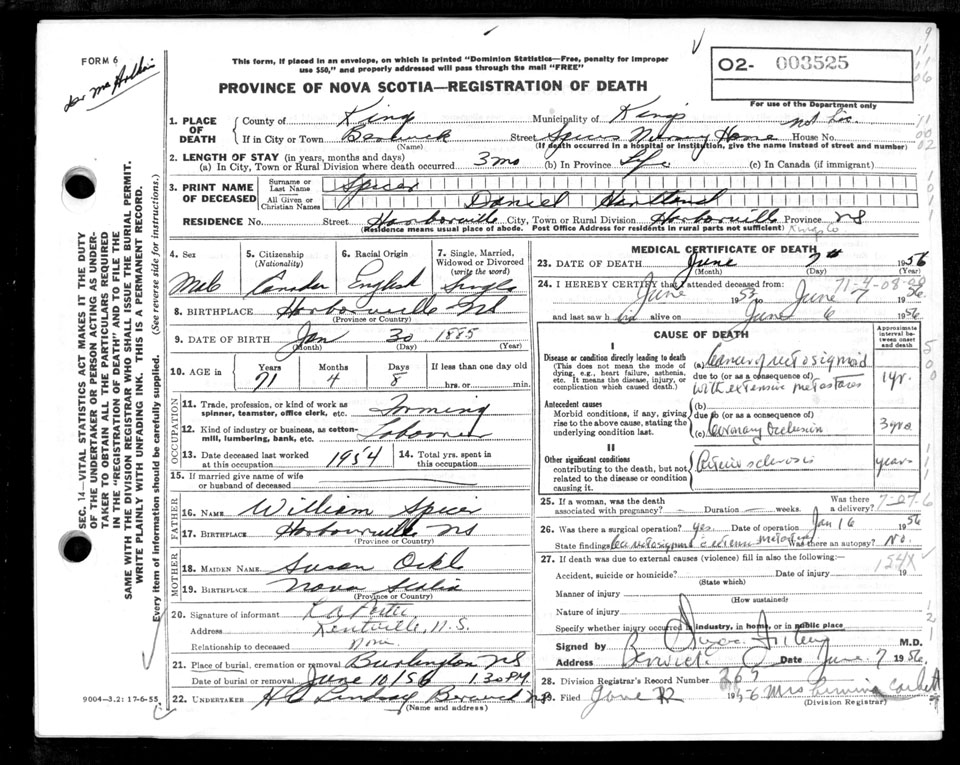 FORM 6
This form, if placed in an envelope, on which is printed "Dominion Statistics—Free, penalty for improper
use $50," and properly addressed will pass through the mail "FREE"
O2- 003525
PROVINCE OF NOVA SCOTIA—REGISTRATION OF DEATH
For use of the Department only
1. PLACE OF DEATH
County of King
Municipality of Kings
If in City or Town Berwick Street Spicers Nursing Home House No.
(Name) (If death occurred in a hospital or institution, give the name instead of street and number)
2. LENGTH OF STAY (in years, months and days)
(a) In City, Town or Rural Division where death occurred 3 mo (b) In Province Life (c) In Canada (if immigrant)
3. PRINT NAME OF DECEASED
Surname or Last Name Spicer
All Given or Christian Names Daniel
RESIDENCE No. Street Harborville City, Town or Rural Division Harborville Province NS
(Residence means usual place of abode. Post Office Address for residents in rural parts not sufficient) Kings Co
4. Sex
5. Citizenship (Nationality)
6. Racial Origin
7. Single, Married, Widowed or Divorced (write the word)
Male Canadian English Single
8. BIRTHPLACE Harborville NS
(Province or Country)
9. DATE OF BIRTH Jan 30 1885
(Month) (Day) (Year)
10. AGE in Years Months Days If less than one day old
71 4 8 hrs. or min.
OCCUPATION
11. Trade, profession, or kind of work as spinner, teamster, office clerk, etc. Farming
12. Kind of industry or business, as cotton-mill, lumbering, bank, etc. Labourer
13. Date deceased last worked at this occupation 1954
14. Total yrs. spent in this occupation
15. If married give name of wife or husband of deceased
FATHER
16. NAME William Spicer
17. BIRTHPLACE Harborville NS
(Province or Country)
MOTHER
18. MAIDEN NAME Susan
19. BIRTHPLACE Nova Scotia
(Province or Country)
20. Signature of informant
Address Kentville, N.S.
Relationship to deceased None
21. Place of burial, cremation or removal Burlington NS
Date of burial or removal June 10/56 1.30 PM
22. UNDERTAKER H C Lindsay Berwick NS
(Name and address)
9004—3.2: 17-6-55
SEC. 14—VITAL STATISTICS ACT MAKES IT THE DUTY
OF THE UNDERTAKER OR PERSON ACTING AS UNDER-
TAKER TO OBTAIN ALL THE PARTICULARS REQUIRED
IN THE "REGISTRATION OF DEATH" AND TO FILE THE
SAME WITH THE DIVISION REGISTRAR WHO SHALL ISSUE THE BURIAL PERMIT.
WRITE PLAINLY WITH UNFADING INK. THIS IS A PERMANENT RECORD.
Every item of information should be carefully supplied. (See reverse side for instructions.)
MEDICAL CERTIFICATE OF DEATH
23. DATE OF DEATH June 7th 1956
(Month) (Day) (Year)
24. I HEREBY CERTIFY that I attended deceased from:
June 1953 to June 7 1956
and last saw h alive on June 6 1956
CAUSE OF DEATH
Approximate interval between onset and death
I
Disease or condition directly leading to death
(This does not mean the mode of dying, e.g., heart failure, asthenia, etc. It means the disease, injury, or complication which caused death.)
(a) Cancer of rectosigmoid
due to (or as a consequence of)
with extensive metastases 1 yr.
Antecedent causes
Morbid conditions, if any, giving rise to the above cause, stating the underlying condition last.
(b)
due to (or as a consequence of)
(c) Coronary Occlusion 3 yrs
II
Other significant conditions
contributing to the death, but not related to the disease or condition causing it.
Arteriosclerosis years
25. If a woman, was the death associated with pregnancy? Duration weeks. Was there a delivery?
26. Was there a surgical operation? Yes. Date of operation Jan 16 1956
State findings Was there an autopsy? No.
27. If death was due to external causes (violence) fill in also the following:—
Accident, suicide or homicide? Date of injury 19
(State which)
Manner of injury
(How sustained)
Nature of injury
Specify whether injury occurred in industry, in home, or in public place
Signed by M.D.
Address Berwick Date June 7 1956
28. Division Registrar's Record Number
29. Filed June 1956 Mrs
(Division Registrar)